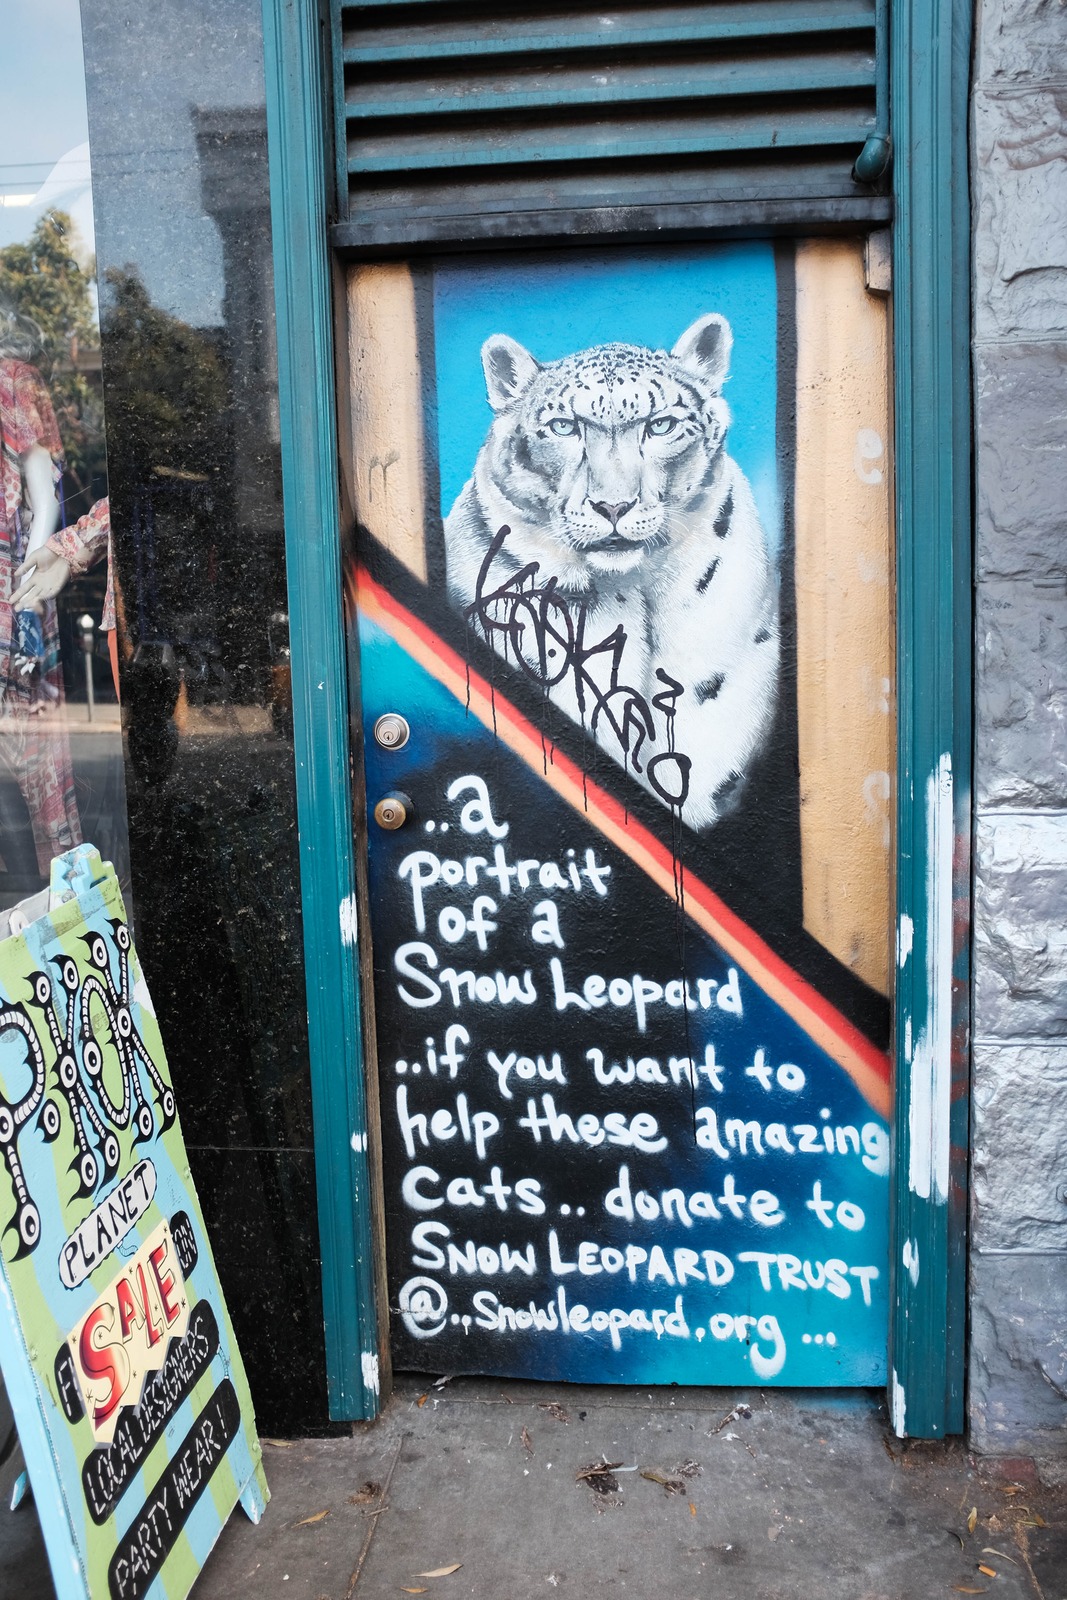 ..a
portrait
of a
Snow Leopard
..if you want to
help these amazing
cats.. donate to
SNOW LEOPARD TRUST
@..Snowleopard.org ...
PLANET
SALE
ON
LOCAL DESIGNERS
PARTY WEAR!